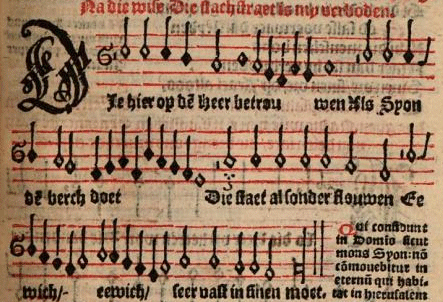 Na die wise Die stach straet is my verboden.
Je hier op dē heer betrou wen Als Syon
dē berch doet Die staet al sonder flouwen Ee
wich/- eewich/ seer vast in sinen moet.
Qui confidunt
in Domīo sicut
mons Syon: nō
cōmouebitur in
eternū qui habi-
tat in hierusalem